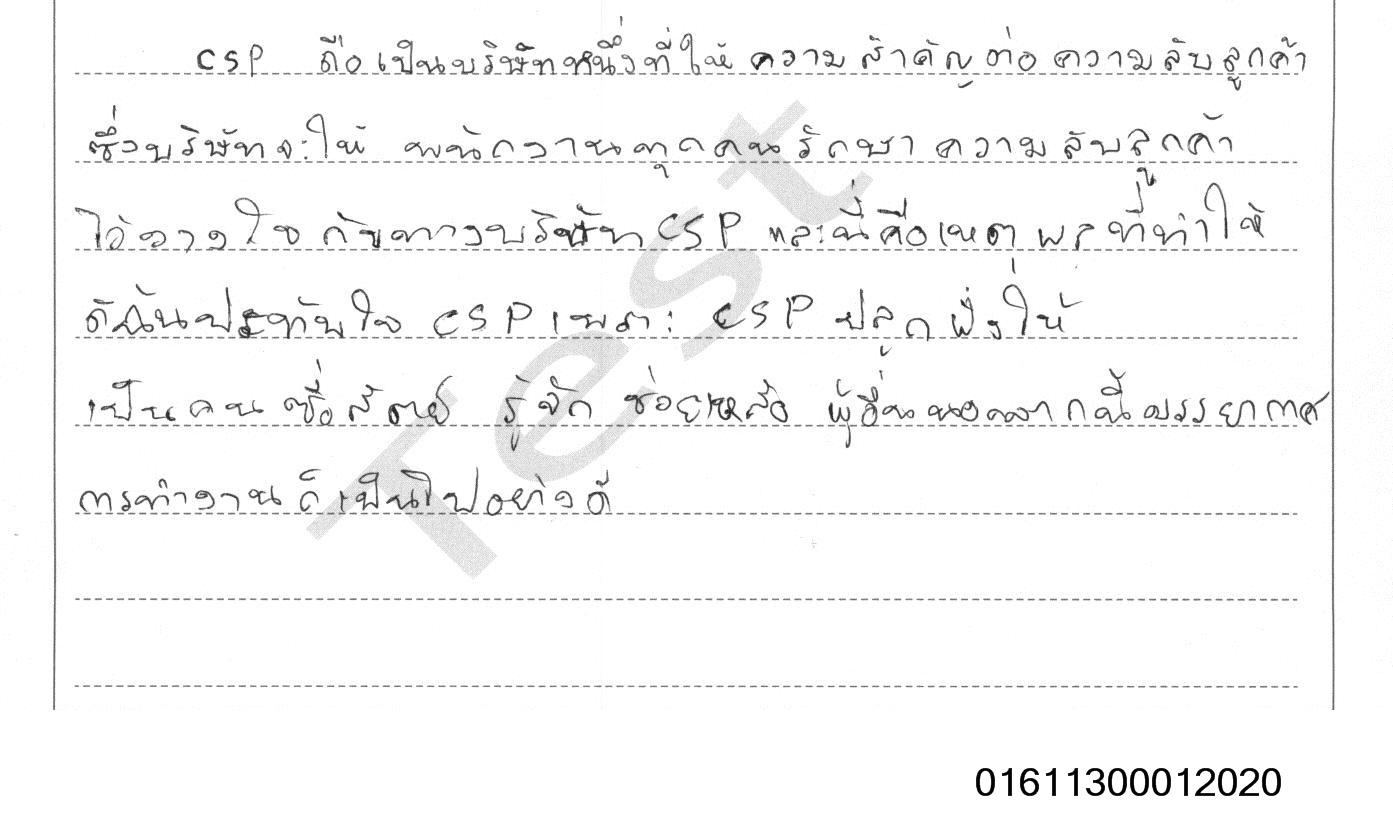 CSP ถือเป็นบริษัทหนึ่งที่ให้ ความสำคัญต่อ ความลับลูกค้า
ซึ่งบริษัทจะให้ พนักงานทุกคนรักษา ความลับลูกค้า
ไว้วางใจ กับทางบริษัท CSP และนี่คือเหตุผลที่ทำให้
ดิฉันประทับใจ CSP เพราะ CSP ปลูกฝังให้
เป็นคน ซื่อสัตย์ รู้จัก ช่วยเหลือ ผู้อื่นนอกจากนี้บรรยากาศ
การทำงานก็เป็นไปอย่างดี
Test
01611300012020